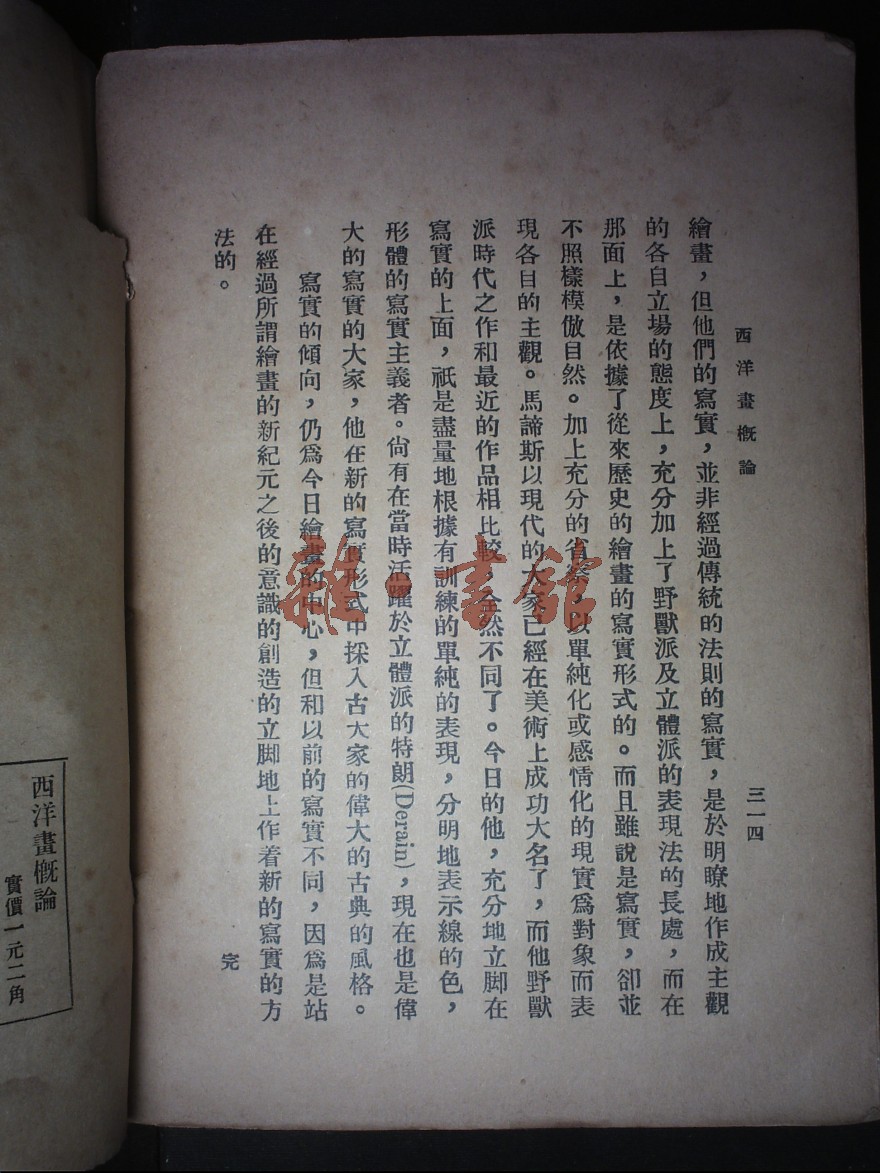 西洋畫概論
三一四
繪畫，但他們的寫實，並非經過傳統的法則的寫實，是於明瞭地作成主觀
的各自立場的態度上，充分加上了野獸派及立體派的表現法的長處，而在
那面上，是依據了從來歷史的繪畫的寫實形式的。而且雖說是寫實，卻並
不照樣模倣自然。加上充分的省察，以單純化或感情化的現實爲對象而表
現各目的主觀。馬諦斯以現代的大家已經在美術上成功大名了，而他野獸
派時代之作和最近的作品相比較，全然不同了。今日的他，充分地立脚在
寫實的上面，祇是盡量地根據有訓練的單純的表現，分明地表示線的色，
形體的寫實主義者。尙有在當時活躍於立體派的特朗(Derain)，現在也是偉
大的寫實的大家，他在新的寫實形式中採入古大家的偉大的古典的風格。
寫實的傾向，仍爲今日繪畫的中心，但和以前的寫實不同，因爲是站
在經過所謂繪畫的新紀元之後的意識的創造的立脚地上作着新的寫實的方
法的。
完
西洋畫概論
實價一元二角
雜·書館